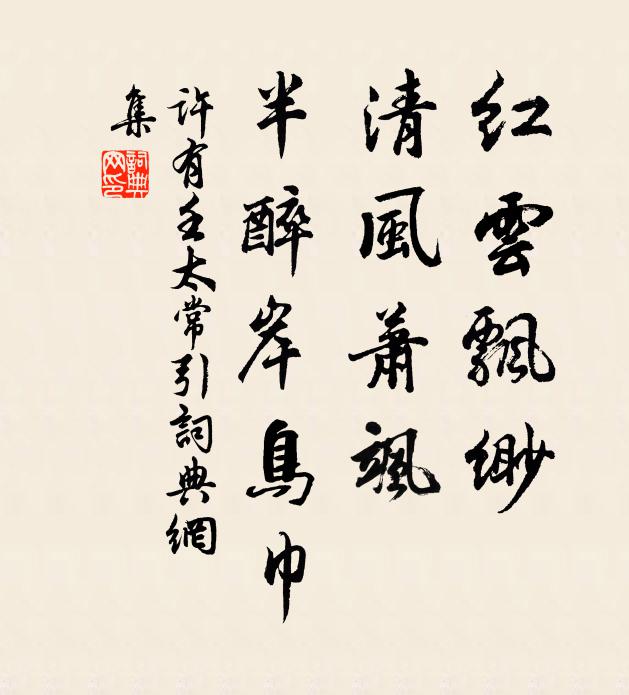 红雲飄緲
清風萧颯
半醉岸烏巾
許有壬太常引詞典網
集
詞典
网印